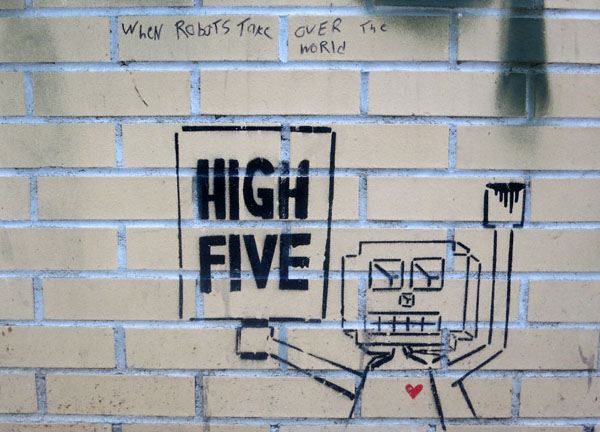 WheN RoBoTS Take OVER The
WoRld
HIGH
FIVE